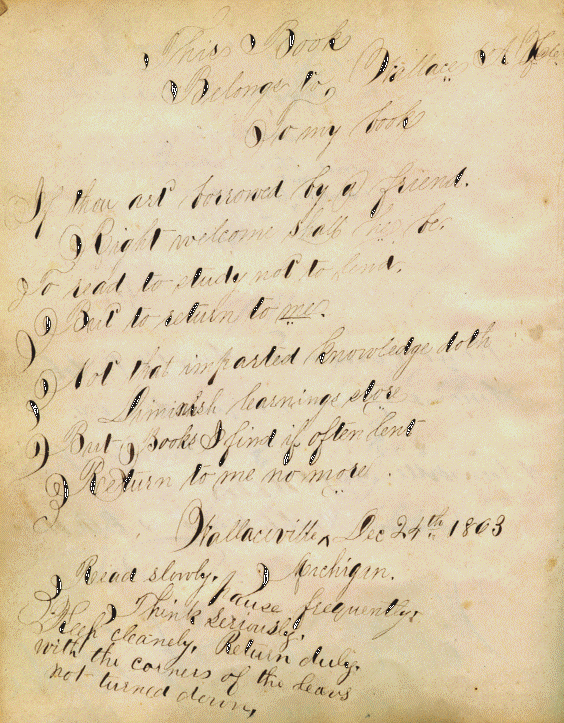 This Book
Belongs to, Wallace A.
To my book
If thou art borrowed by a friend.
Right welcome shall he be.
To read to study not to lend.
But to return to me.
Not that imparted knowledge doth
Diminish learnings store
But Books I find if often lent
Return to me no more.
Wallaceville, Dec 24th 1863
Read slowly, Michigan.
Pause frequently,
Think seriously,
Keep cleanely, Return duly,
with the corners of the leavs
not turned down,